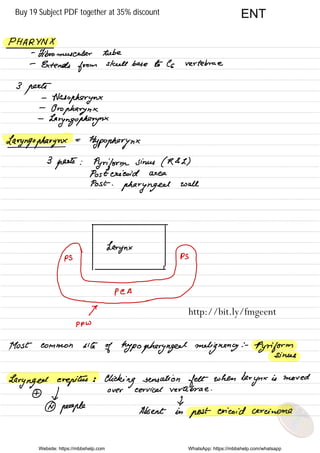 Buy 19 Subject PDF together at 35% discount
ENT
PHARYNX
- Fibromuscular tube
- Extends from skull base to C6 vertebrae
3 parts
- Nasopharynx
- Oropharynx
- Laryngopharynx
Laryngopharynx = Hypopharynx
3 parts : Pyriform sinus (R & L)
Postcricoid area
Post. pharyngeal wall
Larynx
PS
PS
PCA
PPW
http://bit.ly/fmgeent
Most common site of hypopharyngeal malignancy :- Pyriform
sinus
Laryngeal crepitus : Clicking sensation felt when larynx is moved
over cervical vertebrae.
⊕ ↓
Ⓝ people
↓
Absent in post cricoid carcinoma
Website: https://mbbshelp.com
WhatsApp: https://mbbshelp.com/whatsapp